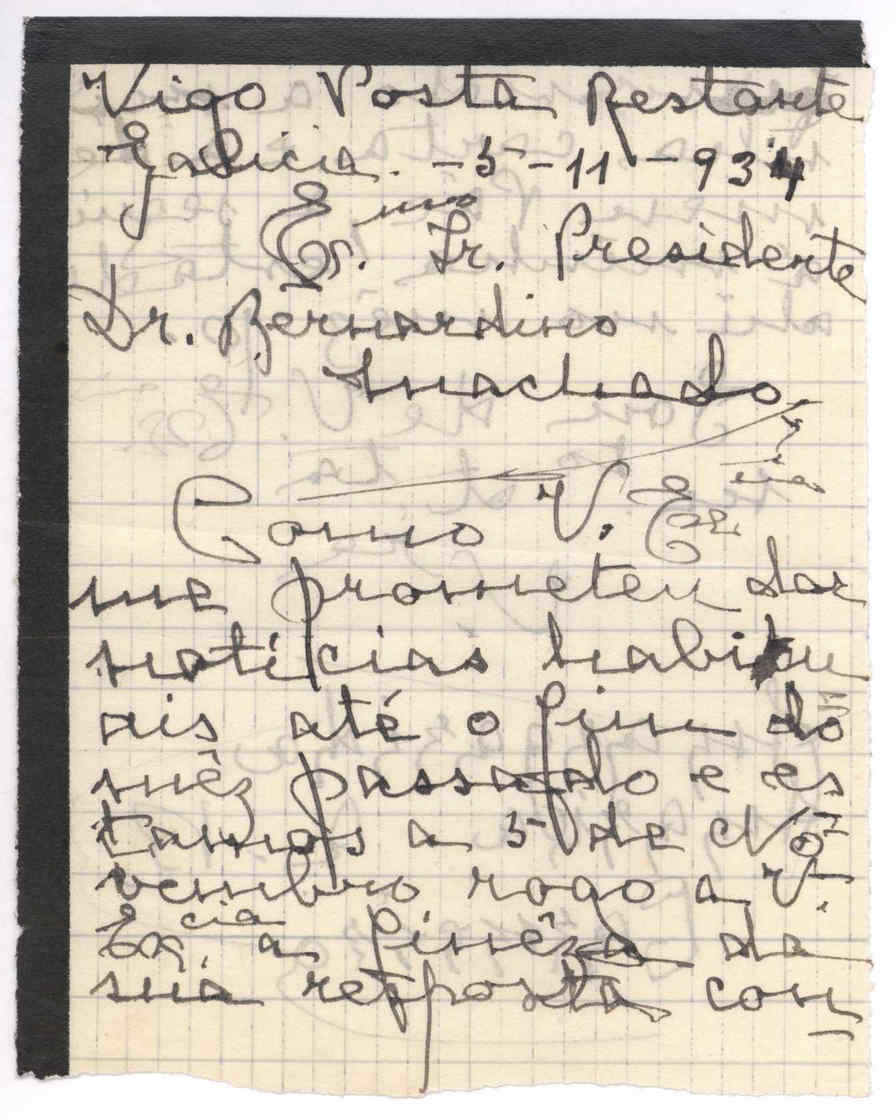 Vigo Posta Restante
Galicia. -5-11-934
Ex.mo Sr. Presidente
Dr. Bernardino
Machado,
Como V. Excia
me prometeu dar
notícias habitu
ais até o fim do
mêz passado e es
tamos a 5 de No-
vembro rogo a V.
Excia a finêza da
sua resposta con